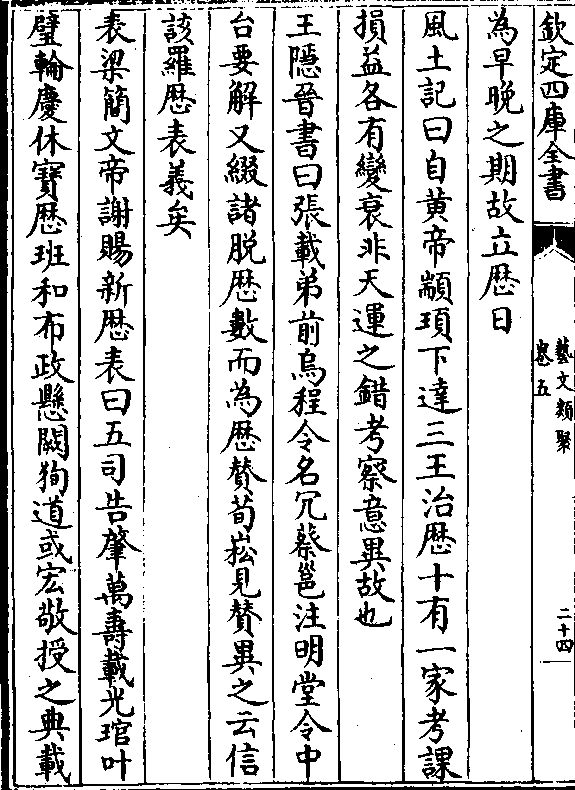 欽定四庫全書
藝文類聚
卷五
二十四
為早晚之期故立歴日
風土記曰自黄帝顓頊下達三王治歴十有一家考課
損益各有變衰非天運之錯考察意異故也
王隱晉書曰張載弟前烏程令名冗蔡邕注明堂令中
台要解又綴諸脱歴數而為歴賛荀崧見賛異之云信
該羅歴表義矣
表梁簡文帝謝賜新歴表曰五司告肇萬壽載光琯叶
璧輪慶休寶歴班和布政懸闕狥道或宏敬授之典載